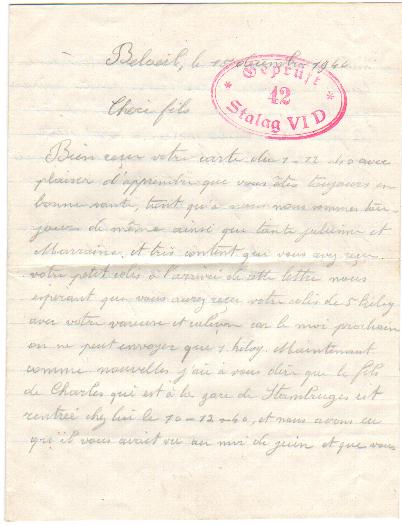 Beloeil, le 15 décembre 1940
Geprüft
42
Stalag VI D
Cheri fils
Bien reçu votre carte du 1-12-40 avec
plaisir d'apprendre que vous êtes toujours en
bonne santé, tant qu'a nous nous sommes tou-
jours de même ainsi que tante julienne et
Marraine, et très content que vous avez reçu
votre petit colis à l'arrivée de cette lettre nous
espérant que vous aurez reçu votre colis de 5 kiloy
avec votre vareuse et car le moi prochain
on ne peut envoyer que 1 kiloy. Maintenant
comme nouvelles j'ai à vous dire que le fils
de Charles qui est à la gare de Stambruges est
rentré chez lui le 10-12-40, et nous avons eu
qu'il vous avait vu au moi de juin et que vous